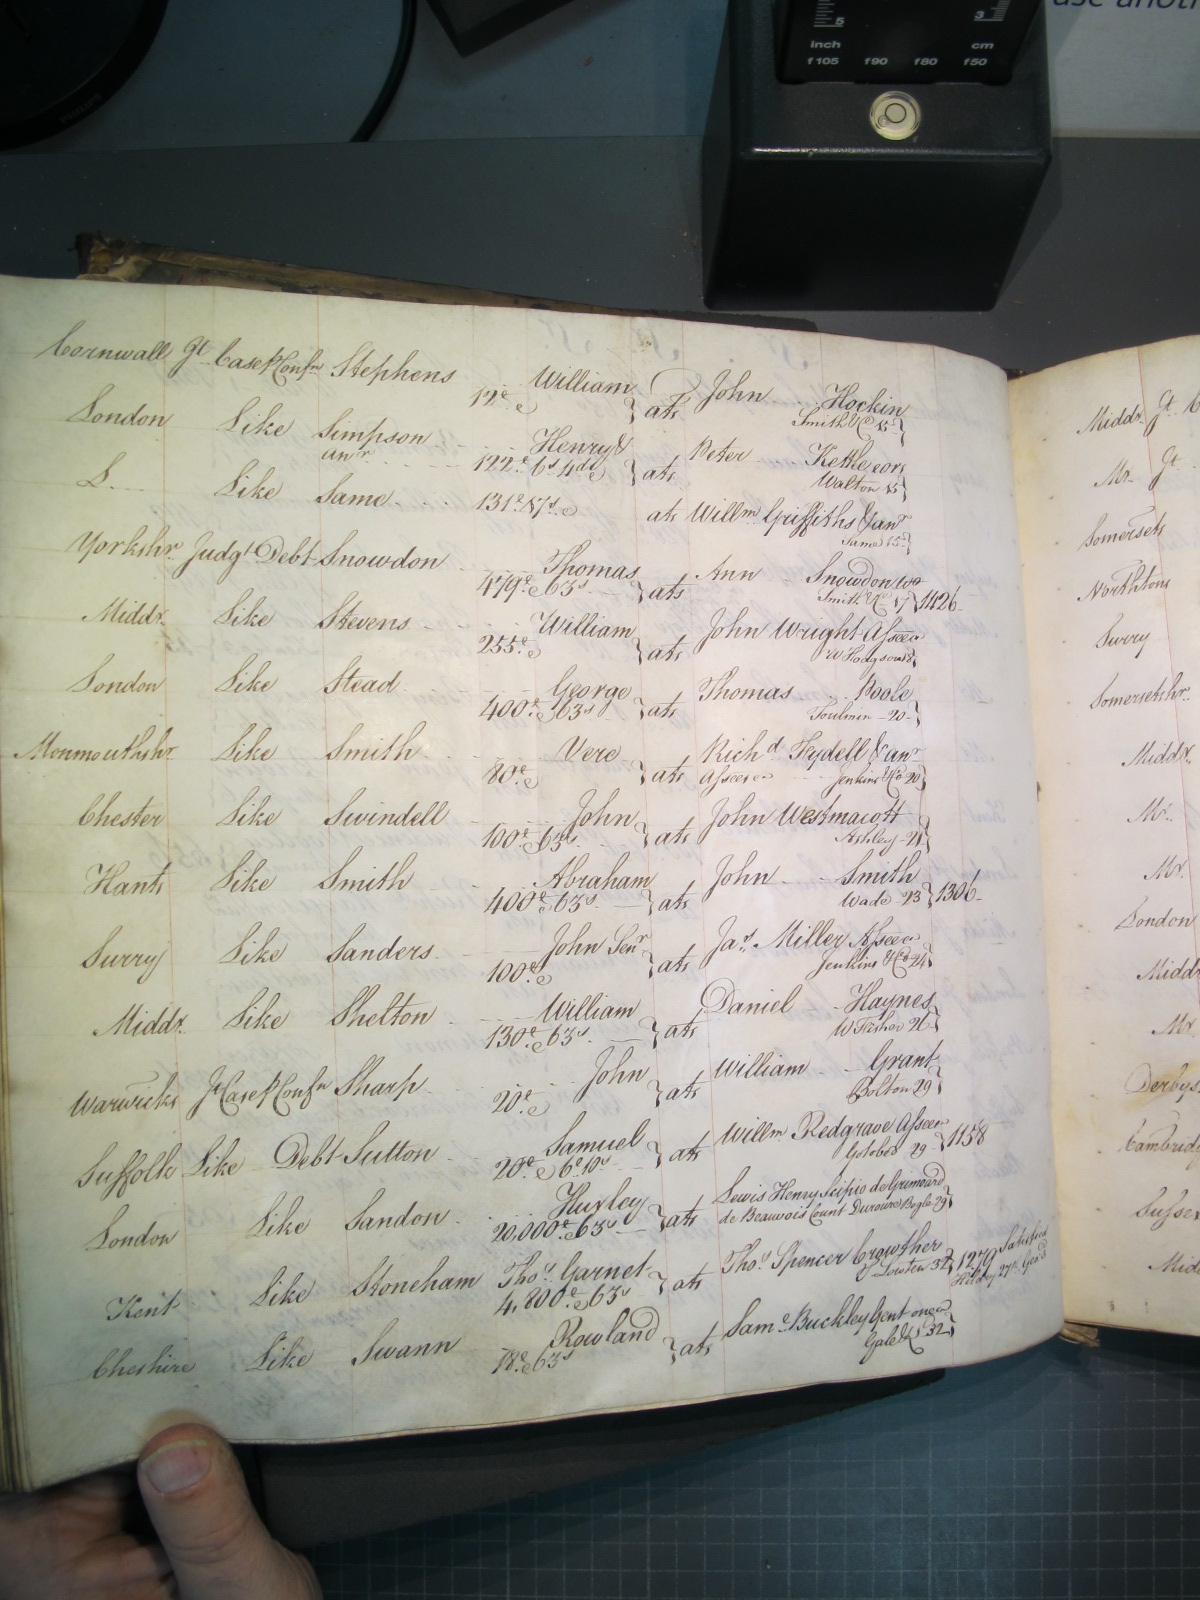 use anoth
5 3
inch cm
f105 f90 f80 f50
PHILIPS
Cornwall Jt Case P Confn Stephens William
12£ } ats John Hockin
Smith & Co 15 }
London Like Simpson Henry &
anr 122£ 6s 4d } ats Peter Kettle exor
Walton 15 }
L. Like Same 131£ 17s ats Willm Griffiths & anr
Same 15 }
Yorkshr Judgt Debt Snowdon Thomas
479£ 63s } ats Ann Snowdon
Smith & Co 17 } 1126
Middx Like Stevens William
255£ } ats John Wright Assee
W Hodgson 18 }
London Like Stead George
400£ 63s } ats Thomas Poole
Toulmin 20 }
Monmouthshr Like Smith Vere
80£ } ats Richd Tydell & anr
Assees Jenkins & Co 20 }
Chester Like Swindell John
100£ 63s } ats John Westmacott
Ashley 21 }
Hants Like Smith Abraham
400£ 63s } ats John Smith
Wade 23 } 1306
Surry Like Sanders John Senr
100£ } ats Jas Miller Assee
Jenkins & Co 24 }
Middx Like Shelton William
130£ 63s } ats Daniel Haynes
W Fisher 26 }
Warwicks Jt Case P Confn Sharp John
20£ } ats William Grant
Bolton 29 }
Suffolk Like Debt Sutton Samuel
20£ 6£ 10s } ats Willm Redgrave Assee
29 } 1158
London Like Sandon Huxley
20,000£ 63s } ats Lewis Henry Scipio de Grimoard
de Beauvois Count Duroure Bogle 29 }
Kent Like Stoneham Thos Garnet
4,800£ 63s } ats Thos Spencer Crowther
Lowten 32 } 1270 Satisfied
Hilary 27th Geo 3d
Cheshire Like Swann Rowland
18£ 63s } ats Saml Buckley Gent one &c
Gale & 32 }
Middx Jt
Mx Jt
Somersets
Northtons
Surry
Somersetshr
Middx
Mx
Mx
London
Middx
Mx
Derbys
Cambridg
Sussex
Midd